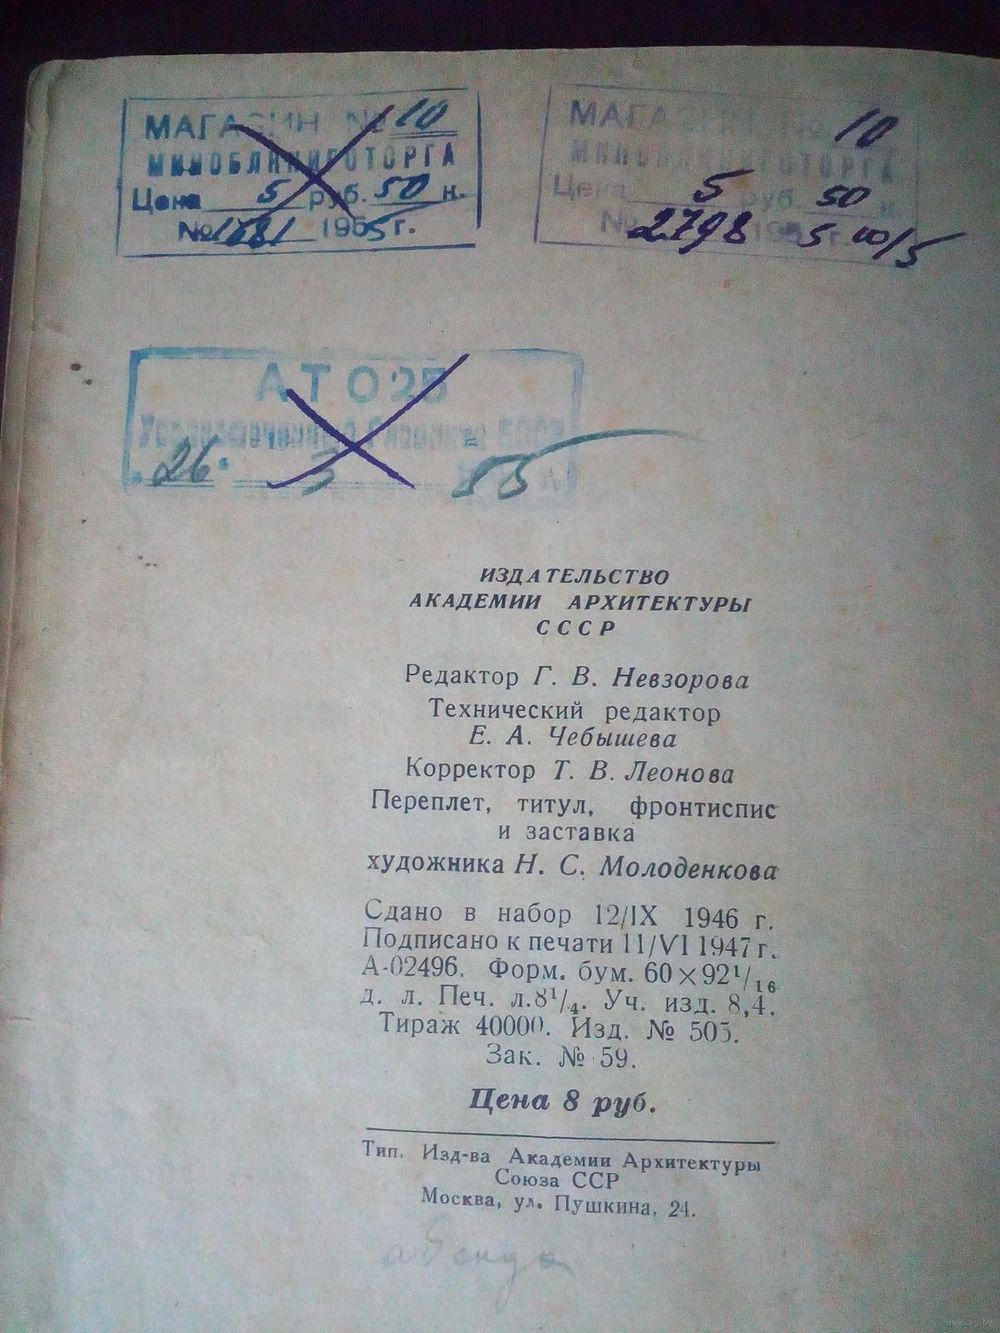 МАГАЗИН № 10
МИНОБЛКНИГОТОРГА
Цена 5 руб. 50 к.
№ 1681 1955 г.
МАГАЗИН № 10
МИНОБЛКНИГОТОРГА
Цена 5 руб. 50 к.
№ 2798 195 г.
АТО25
26 3 55 г.
ИЗДАТЕЛЬСТВО
АКАДЕМИИ АРХИТЕКТУРЫ
СССР
Редактор Г. В. Невзорова
Технический редактор
Е. А. Чебышева
Корректор Т. В. Леонова
Переплет, титул, фронтиспис
и заставка
художника Н. С. Молоденкова
Сдано в набор 12/IX 1946 г.
Подписано к печати 11/VI 1947 г.
А-02496. Форм. бум. 60×92¹/₁₆
д. л. Печ. л. 8¹/₄. Уч. изд. 8,4.
Тираж 40000. Изд. № 505.
Зак. № 59.
Цена 8 руб.
Тип. Изд-ва Академии Архитектуры
Союза ССР
Москва, ул. Пушкина, 24.
www.ay.by